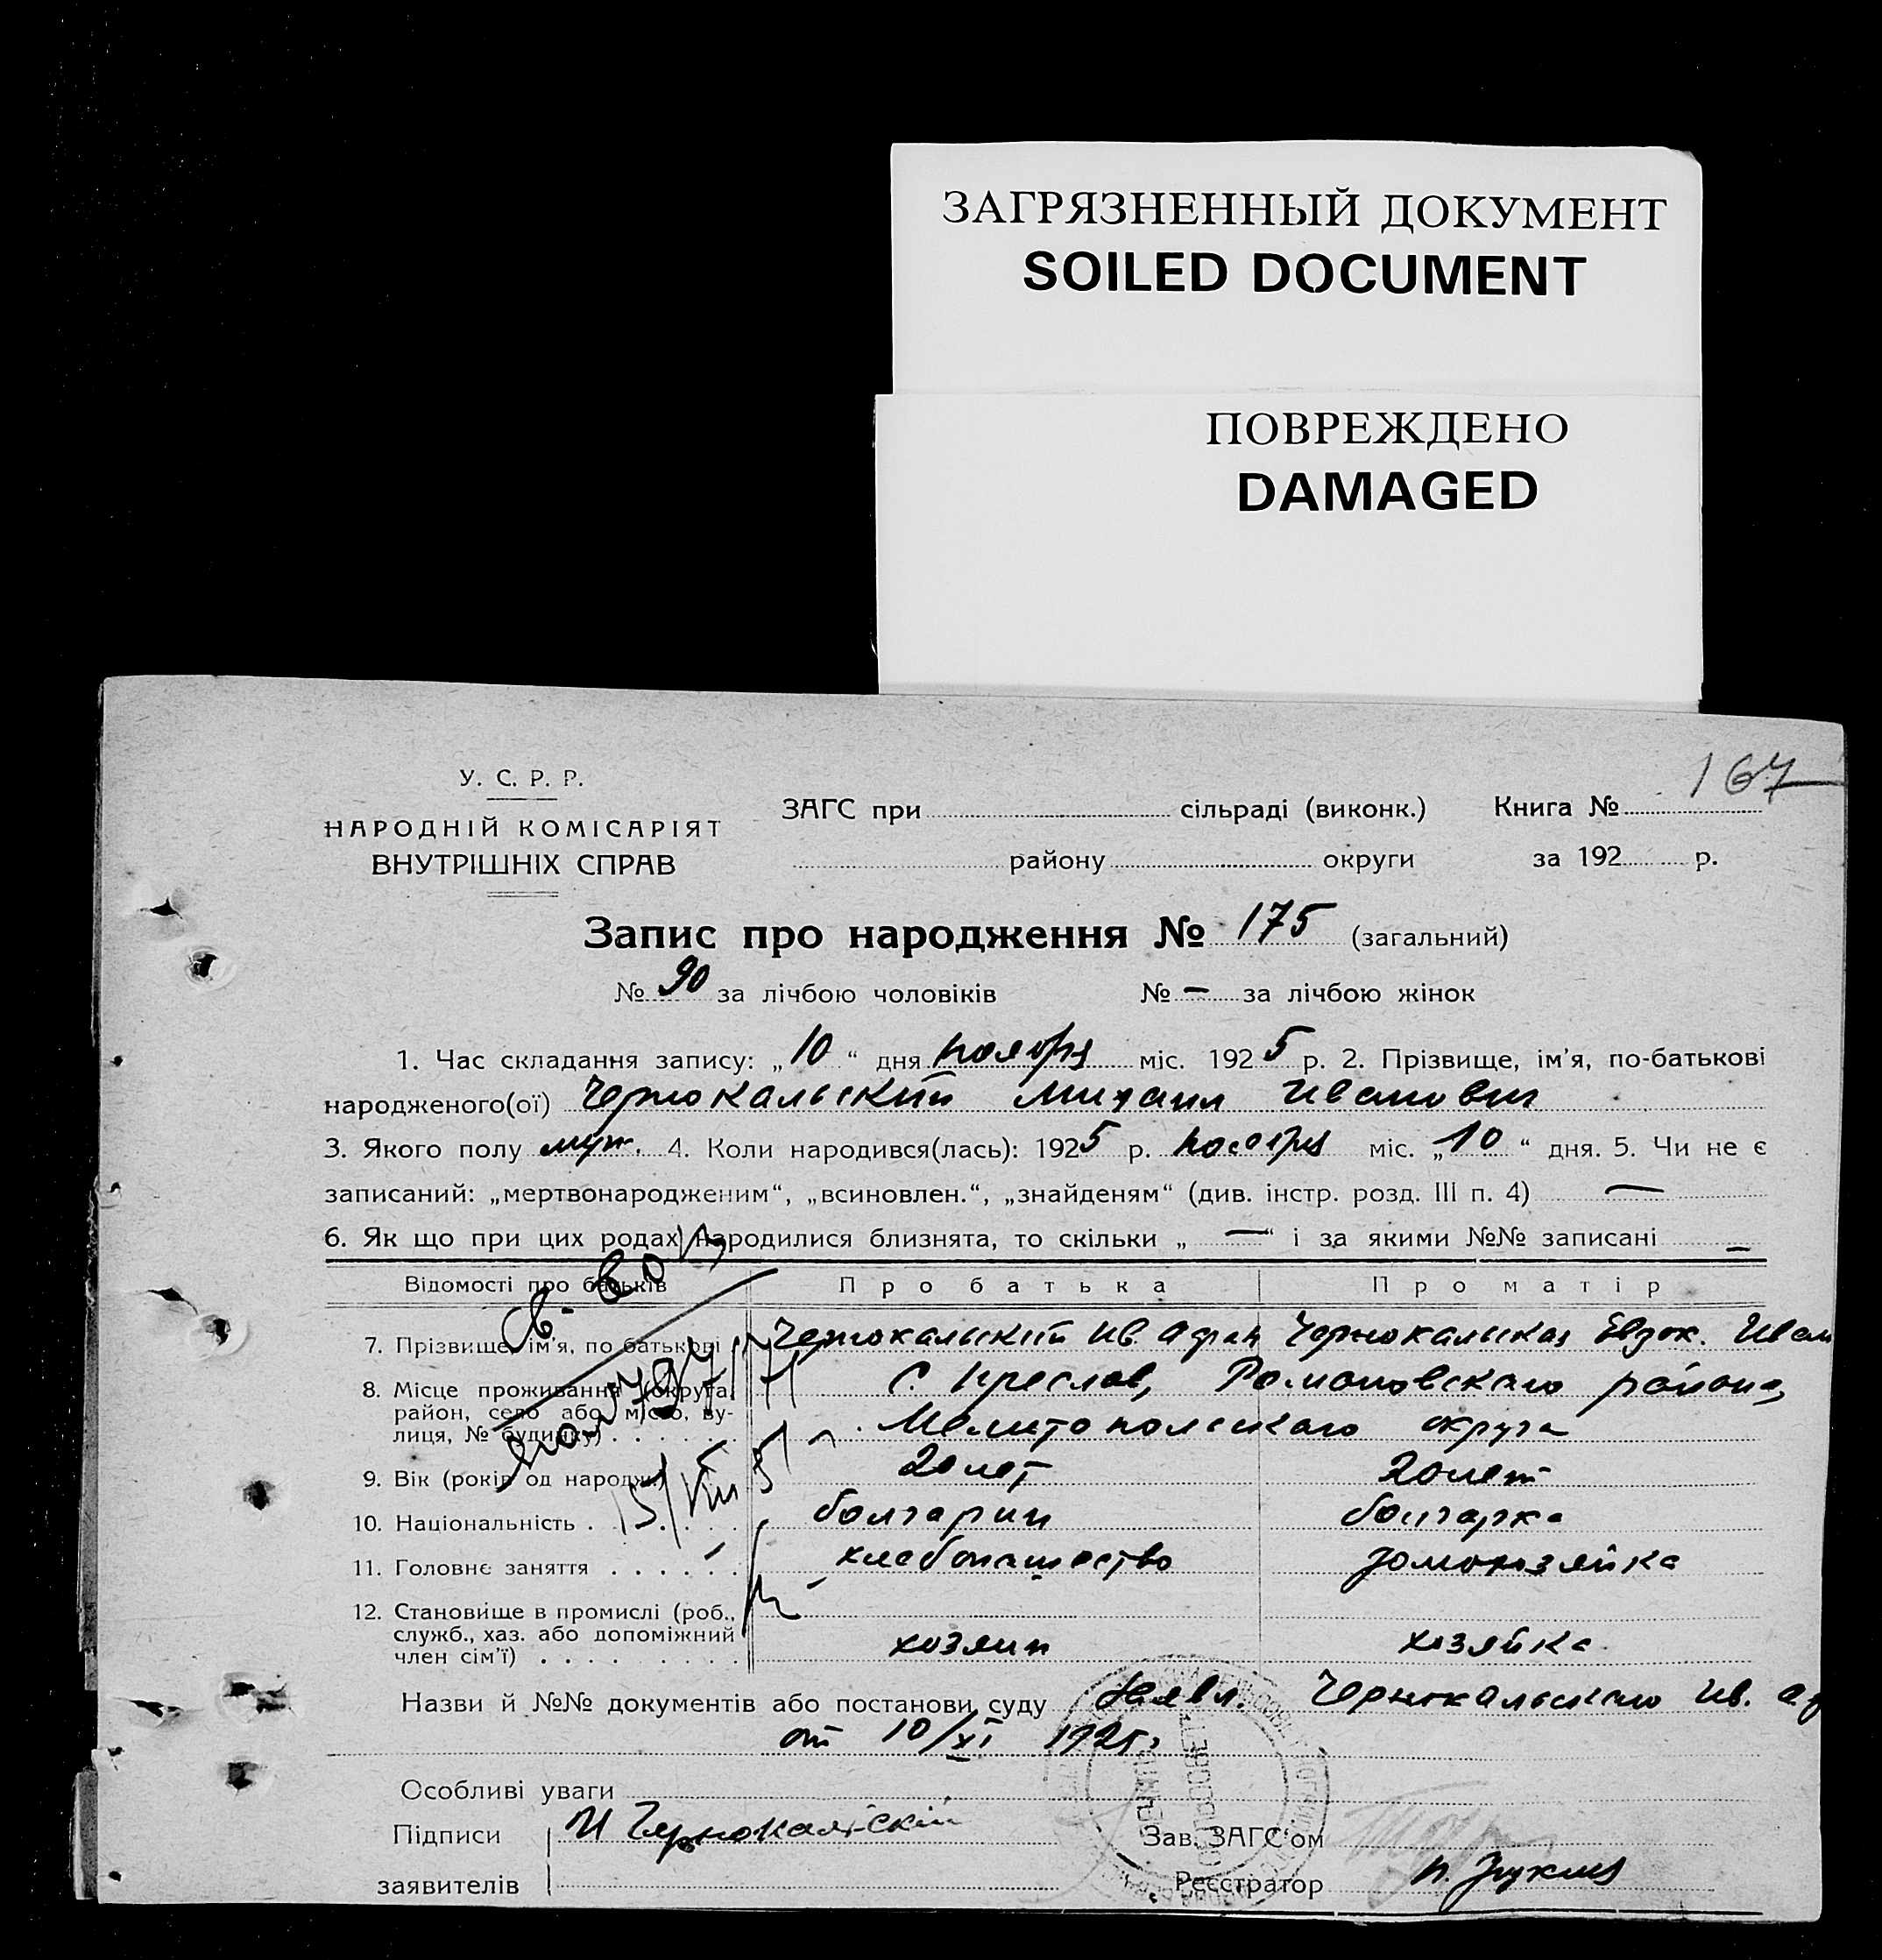 ЗАГРЯЗНЕННЫЙ ДОКУМЕНТ
SOILED DOCUMENT
ПОВРЕЖДЕНО
DAMAGED
167
У. С. Р. Р.
НАРОДНІЙ КОМІСАРІЯТ
ВНУТРІШНІХ СПРАВ
ЗАГС при сільраді (виконк.) Книга №
району округи за 192 р.
Запис про народження № 175 (загальний)
№ 90 за лічбою чоловіків № — за лічбою жінок
1. Час складання запису: „10“ дня ноября міс. 1925 р. 2. Прізвище, ім’я, по-батькові
народженого(ої) Чернокальский Михаил Иванович
3. Якого полу муж. 4. Коли народився(лась): 1925 р. ноября міс. „10“ дня. 5. Чи не є
записаний: „мертвонародженим“, „всиновлен.“, „знайденям“ (див. інстр. розд. III п. 4) —
6. Як що при цих родах народилися близнята, то скільки „—“ і за якими №№ записані —
Відомості про батьків Про батька Про матір
7. Прізвище, ім’я, по батькові Чернокальский Ив. Афан Чернокальская Евдок. Иван
8. Місце проживання (округа,
район, село або місто, ву-
лиця, № будинку)
С. Преслав, Романовского района,
Мелитопольского округа
9. Вік (років од народж.) 20 лет 20 лет
10. Національність болгарин болгарка
11. Головнє заняття хлебопашество домохозяйка
12. Становище в промислі (роб.,
служб., хаз. або допоміжний
член сім’ї) хозяин хозяйка
Назви й №№ документів або постанови суду Заявл. Чернокальского Ив. Аф
от 10/XI 1925г.
Особливі уваги
Підписи И Чернокальский Зав. ЗАГС‘ом
заявителів Реєстратор